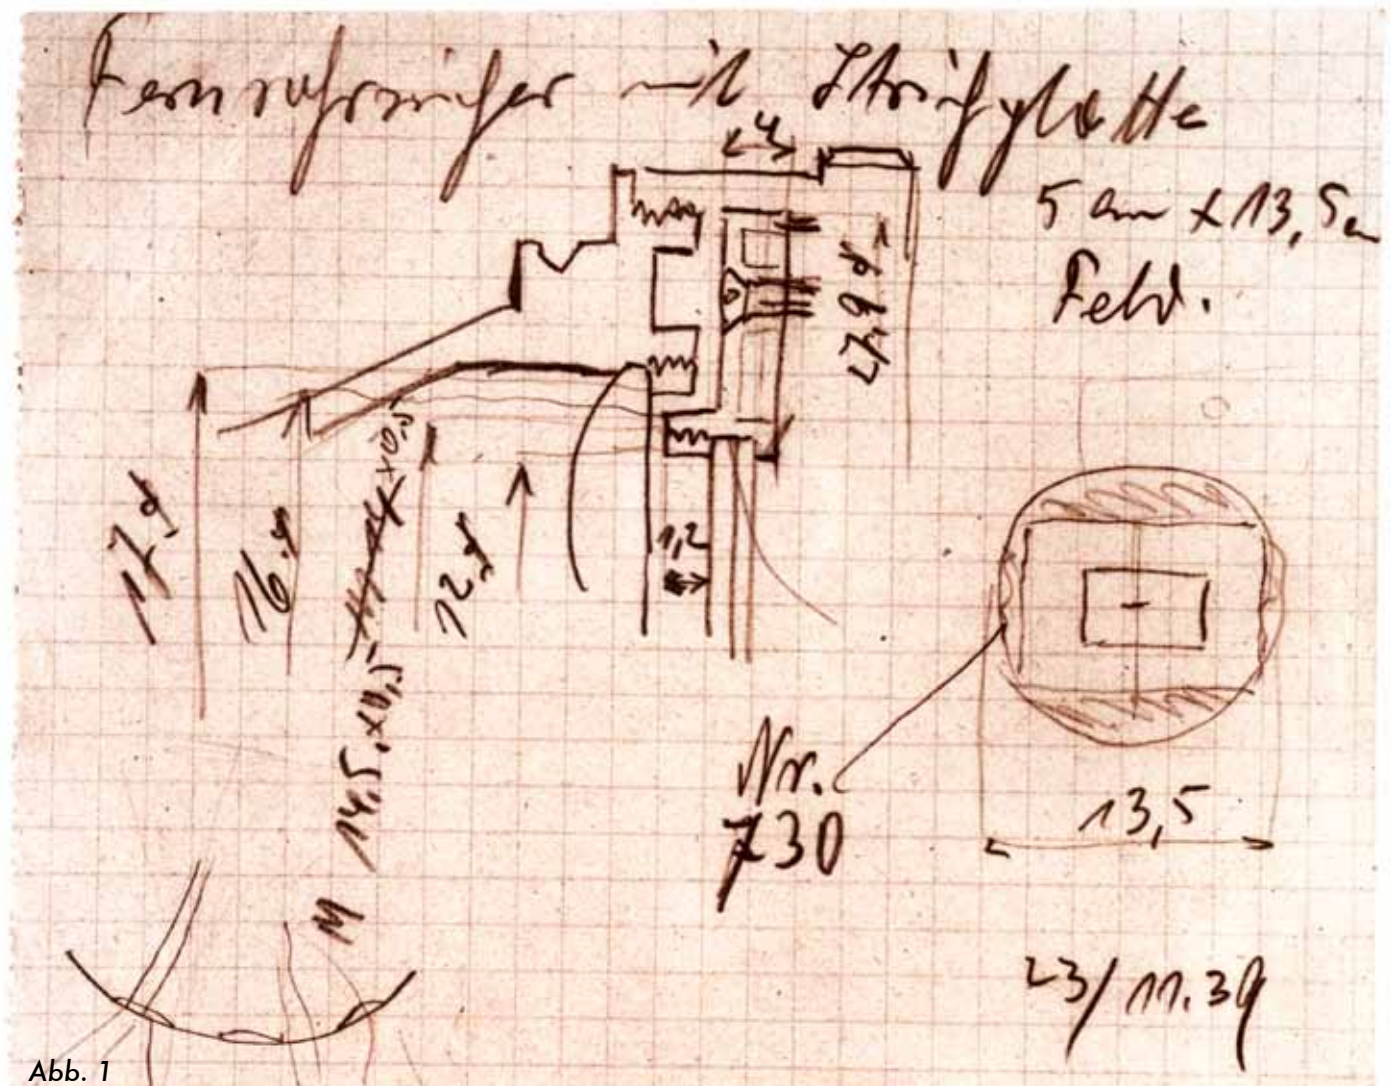 Fernrohrsucher mit Strichplatte
4
5 cm x 13,5 cm
Feld.
27,9 ø
17 ø
16 ø
12 ø
1,2
M 14,5 x 0,5
Nr.
730
13,5
23/11.39
Abb. 1